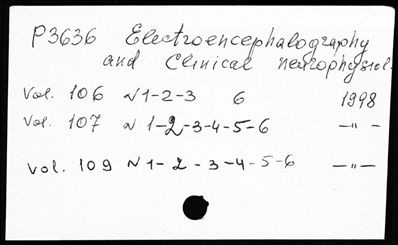 P3636 Electroencephalography
and Clinical neurophysiol.
Vol. 106 N 1-2-3 6 1998
Vol. 107 N 1-2-3-4-5-6 —"— -
Vol. 109 N 1-2-3-4-5-6 —"—